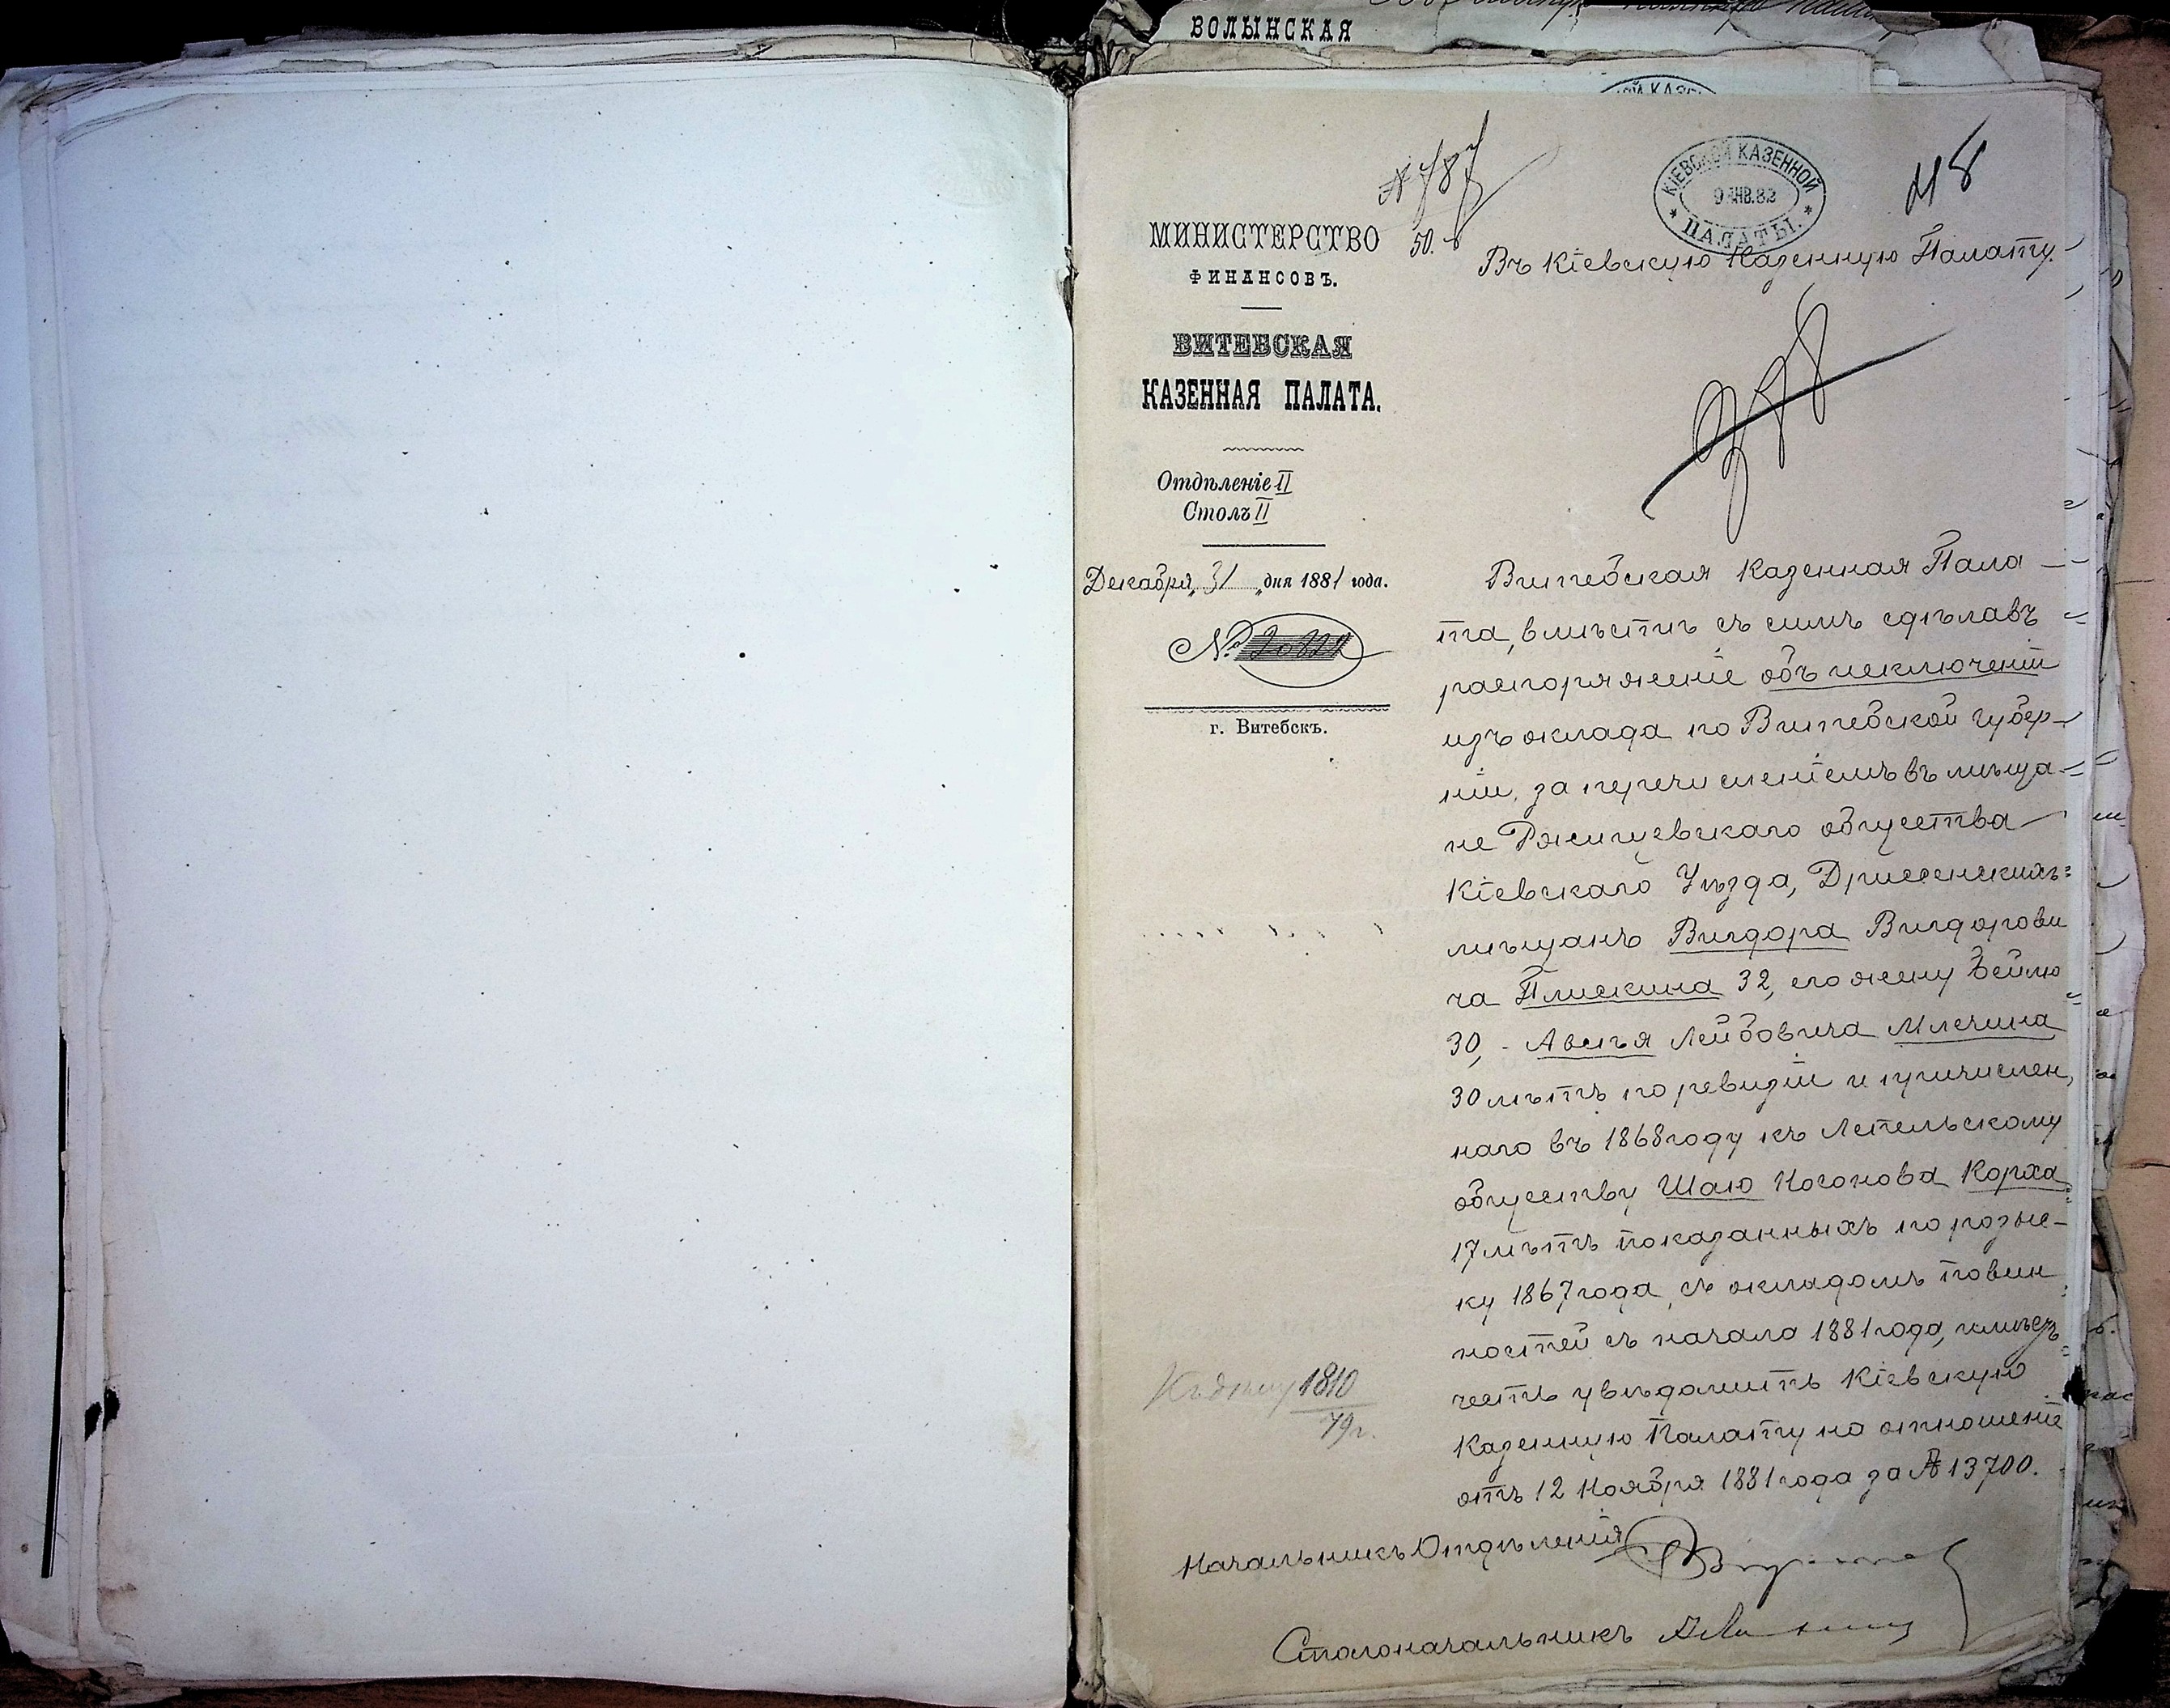 ВОЛЫНСКАЯ
КІЕВСКОЙ КАЗЕННОЙ
9 ЯНВ. 82
ПАЛАТЫ.
МИНИСТЕРСТВО
ФИНАНСОВЪ.
ВИТЕБСКАЯ
КАЗЕННАЯ ПАЛАТА.
Отдѣленіе II
Столъ II
Декабря „31„ дня 1881 года.
№ 20821
г. Витебскъ.
Въ Кіевскую Казенную Палату.
Витебская Казенная Пала
та, вмѣстѣ съ симъ сдѣлавъ
распоряженіе объ исключеніи
изъ оклада по Витебской губер-
ніи, за перечисленіемъ въ мѣща-
не Ржищевскаго общества
Кіевскаго Уѣзда, Дриссенскихъ
мѣщанъ Вигдора Вигдорови
ча Плискина 32, его жену Бейлю
30, - Авсѣя Лейбовича Млечина
30 лѣтъ по ревизіи и причислен,
наго въ 1868 году къ Лепельскому
обществу Шаю Ногонова Корха
17 лѣтъ показанныхъ по розыс-
ку 1867 года, съ окладомъ повин
ностей съ начала 1881 года, имѣетъ
честь увѣдомить Кіевскую
Казенную Палату на отношеніе
отъ 12 Ноября 1881 года за № 13700.
Къ дѣлу 1810
79 г.
Начальникъ Отдѣленія
Столоначальникъ